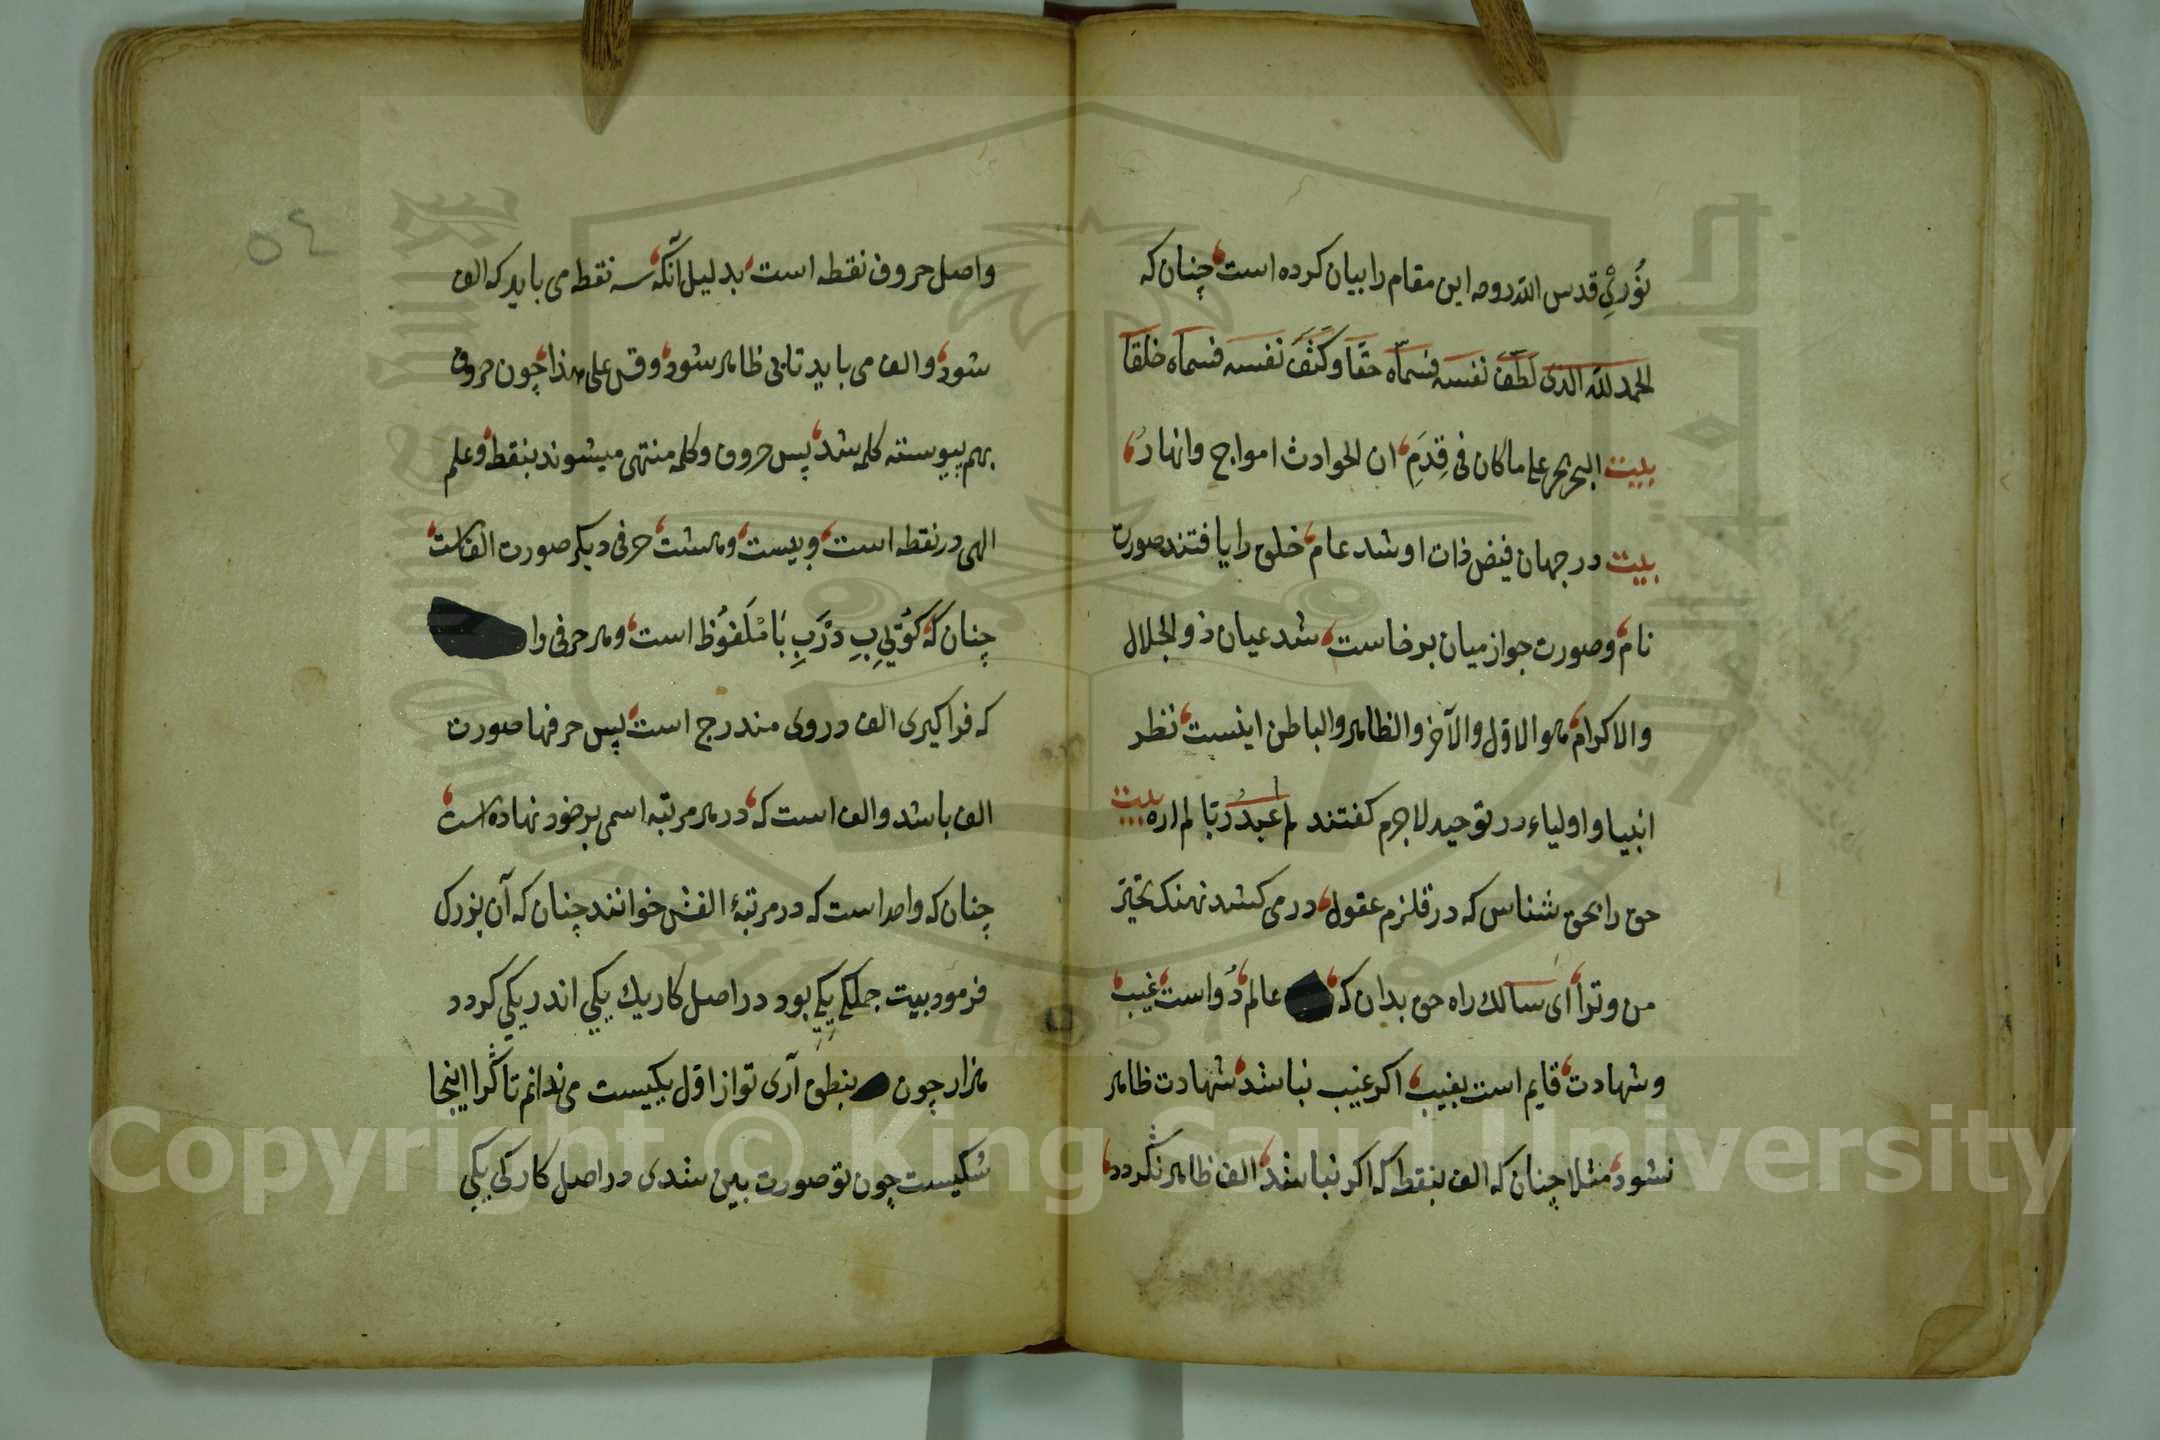 نُورىْ قدس الله روحه این مقام را بیان کرده است چنان که
الحمد لله الذى لَطَّفَ نفسه فسمّاه حقًا وكثّفَ نفسه فسماه خلقا
بیت البحر بحر على ما كان فى قِدَمِ ان الحوادث امواج وانهارُ
بیت در جهان فیض ذات او شد عام خلق را یافتند صورت
نام وصورت جو از میان برخاست شد عیان ذو الجلال
والاكرام هو الاوّل والآخر والظاهر والباطن اینست نظر
انبیا و اولیاء در توحید لاجرم کفتند لم اعبد ربّا لم اره بیت
حق را بحق شناس که در قلزم عقول در می کشد نهنک تحیّر
من وترا ای سالك راه حق بدان که عالم دُو است غیب
وشهادت قایم است بغیب اکر غیب نباشد شهادت ظاهر
نشود مثلا چنان که الف بنقطه که اکر نباشد الف ظاهر نکردد
٥٤
واصل حروف نقطه است بدلیل آنکه سه نقطه می باید که الف
شود والف می باید تا بی ظاهر شود وقس على هذا چون حروف
بهم پیوسته کلمه شد پس حروف وکلمه منتهی میشوند بنقطه وعلم
الهی در نقطه است وبیست وهشت حرفی دیکر صورت الف است
چنان که کوُیی بِ دَرْ بِ بَا مَلْفوُظ است وهر حرفی را
که فراکیری الف در وی مندرج است پس حرفها صورت
الف باشد والف است که در هر مرتبه اسمی بر خود نهاده است
چنان که واحد است که در مرتبهٔ الفش خوانند چنان که آن بزرك
فرمود بیت جملکی یکی بود در اصل کار یك یکی اندر یکی کردد
هزار چون بنطق آری تو از اوّل یکیست می ندانم تا کرا اینجا
شکیست چون تو صورت بین شدی در اصل کار کی یکی